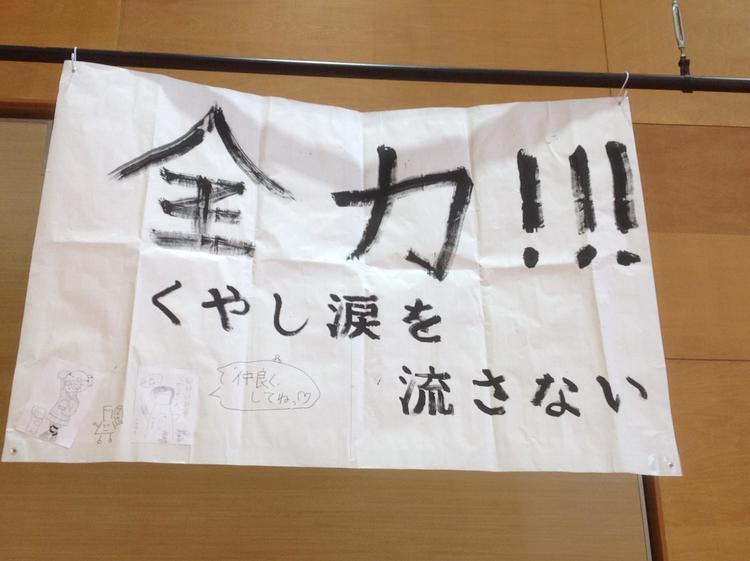 全力!!!
くやし涙を
流さない
仲良く
してねっ♡